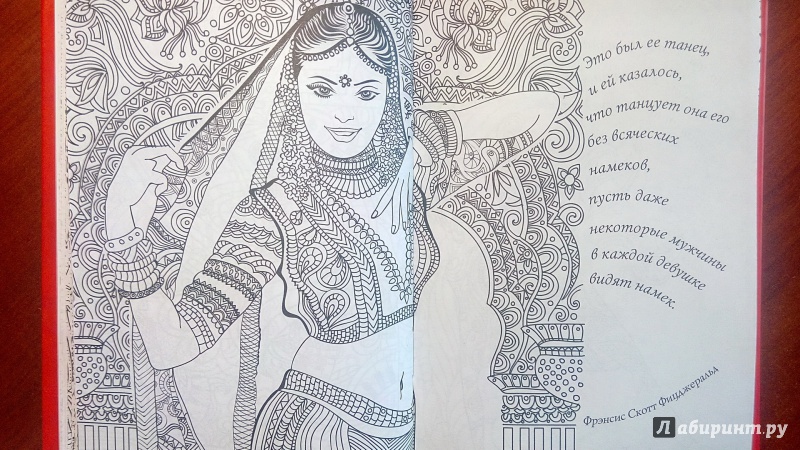 Это был ее танец,
и ей казалось,
что танцует она его
без всяческих
намеков,
пусть даже
некоторые мужчины
в каждой девушке
видят намек.
Фрэнсис Скотт Фицджеральд
Лабиринт.ру